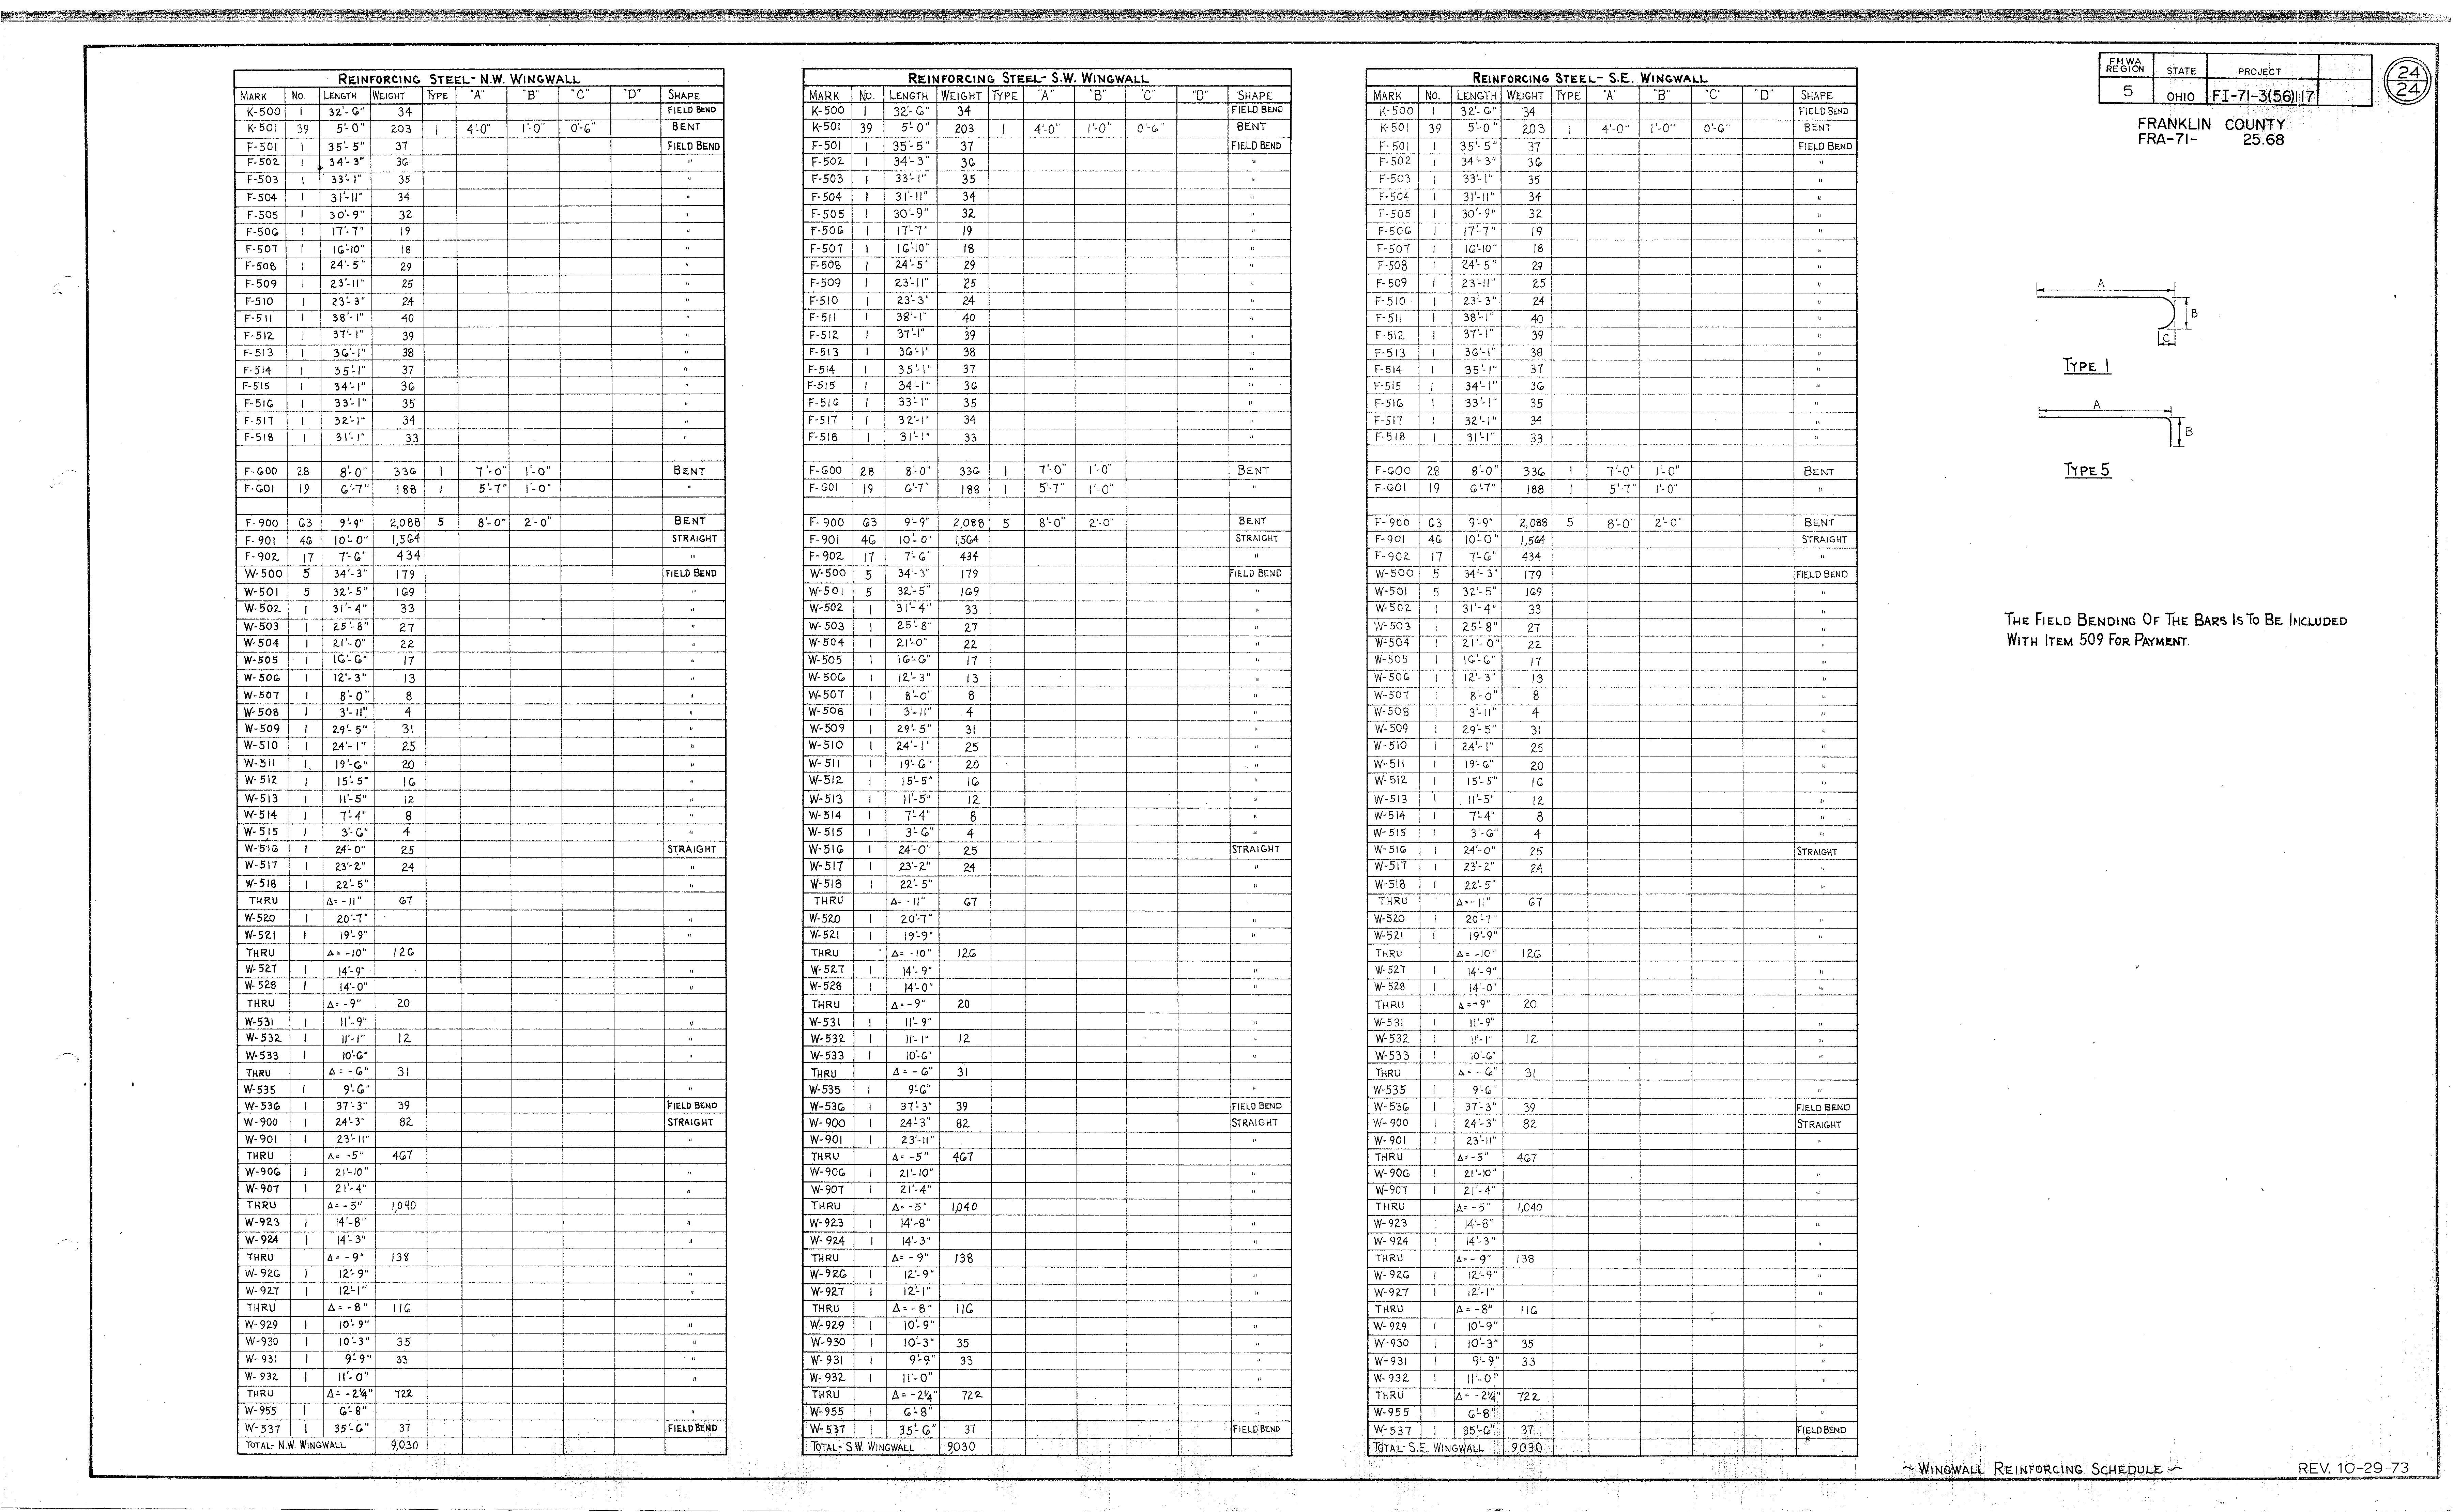 REINFORCING STEEL- N.W. WINGWALL
MARK No. LENGTH WEIGHT TYPE "A" "B" "C" "D" SHAPE
K-500 1 32'-6" 34 FIELD BEND
K-501 39 5'-0" 203 1 4'-0" 1'-0" 0'-6" BENT
F-501 1 35'-5" 37 FIELD BEND
F-502 1 34'-3" 36 "
F-503 1 33'-1" 35 "
F-504 1 31'-11" 34 "
F-505 1 30'-9" 32 "
F-506 1 17'-7" 19 "
F-507 1 16'-10" 18 "
F-508 1 24'-5" 29 "
F-509 1 23'-11" 25 "
F-510 1 23'-3" 24 "
F-511 1 38'-1" 40 "
F-512 1 37'-1" 39 "
F-513 1 36'-1" 38 "
F-514 1 35'-1" 37 "
F-515 1 34'-1" 36 "
F-516 1 33'-1" 35 "
F-517 1 32'-1" 34 "
F-518 1 31'-1" 33 "
F-600 28 8'-0" 336 1 7'-0" 1'-0" BENT
F-601 19 6'-7" 188 1 5'-7" 1'-0" "
F-900 63 9'-9" 2,088 5 8'-0" 2'-0" BENT
F-901 46 10'-0" 1,564 STRAIGHT
F-902 17 7'-6" 434 "
W-500 5 34'-3" 179 FIELD BEND
W-501 5 32'-5" 169 "
W-502 1 31'-4" 33 "
W-503 1 25'-8" 27 "
W-504 1 21'-0" 22 "
W-505 1 16'-6" 17 "
W-506 1 12'-3" 13 "
W-507 1 8'-0" 8 "
W-508 1 3'-11" 4 "
W-509 1 29'-5" 31 "
W-510 1 24'-1" 25 "
W-511 1 19'-6" 20 "
W-512 1 15'-5" 16 "
W-513 1 11'-5" 12 "
W-514 1 7'-4" 8 "
W-515 1 3'-6" 4 "
W-516 1 24'-0" 25 STRAIGHT
W-517 1 23'-2" 24 "
W-518 1 22'-5" "
THRU Δ= -11" 67
W-520 1 20'-7" "
W-521 1 19'-9" "
THRU Δ= -10" 126
W-527 1 14'-9" "
W-528 1 14'-0" "
THRU Δ= -9" 20
W-531 1 11'-9" "
W-532 1 11'-1" 12 "
W-533 1 10'-6" "
THRU Δ= -6" 31
W-535 1 9'-6" "
W-536 1 37'-3" 39 FIELD BEND
W-900 1 24'-3" 82 STRAIGHT
W-901 1 23'-11" "
THRU Δ= -5" 467
W-906 1 21'-10" "
W-907 1 21'-4" "
THRU Δ= -5" 1,040
W-923 1 14'-8" "
W-924 1 14'-3" "
THRU Δ= -9" 138
W-926 1 12'-9" "
W-927 1 12'-1" "
THRU Δ= -8" 116
W-929 1 10'-9" "
W-930 1 10'-3" 35 "
W-931 1 9'-9" 33 "
W-932 1 11'-0" "
THRU Δ= -2¼" 722
W-955 1 6'-8" "
W-537 1 35'-6" 37 FIELD BEND
TOTAL- N.W. WINGWALL 9,030
REINFORCING STEEL- S.W. WINGWALL
MARK No. LENGTH WEIGHT TYPE "A" "B" "C" "D" SHAPE
K-500 1 32'-6" 34 FIELD BEND
K-501 39 5'-0" 203 1 4'-0" 1'-0" 0'-6" BENT
F-501 1 35'-5" 37 FIELD BEND
F-502 1 34'-3" 36 "
F-503 1 33'-1" 35 "
F-504 1 31'-11" 34 "
F-505 1 30'-9" 32 "
F-506 1 17'-7" 19 "
F-507 1 16'-10" 18 "
F-508 1 24'-5" 29 "
F-509 1 23'-11" 25 "
F-510 1 23'-3" 24 "
F-511 1 38'-1" 40 "
F-512 1 37'-1" 39 "
F-513 1 36'-1" 38 "
F-514 1 35'-1" 37 "
F-515 1 34'-1" 36 "
F-516 1 33'-1" 35 "
F-517 1 32'-1" 34 "
F-518 1 31'-1" 33 "
F-600 28 8'-0" 336 1 7'-0" 1'-0" BENT
F-601 19 6'-7" 188 1 5'-7" 1'-0" "
F-900 63 9'-9" 2,088 5 8'-0" 2'-0" BENT
F-901 46 10'-0" 1,564 STRAIGHT
F-902 17 7'-6" 434 "
W-500 5 34'-3" 179 FIELD BEND
W-501 5 32'-5" 169 "
W-502 1 31'-4" 33 "
W-503 1 25'-8" 27 "
W-504 1 21'-0" 22 "
W-505 1 16'-6" 17 "
W-506 1 12'-3" 13 "
W-507 1 8'-0" 8 "
W-508 1 3'-11" 4 "
W-509 1 29'-5" 31 "
W-510 1 24'-1" 25 "
W-511 1 19'-6" 20 "
W-512 1 15'-5" 16 "
W-513 1 11'-5" 12 "
W-514 1 7'-4" 8 "
W-515 1 3'-6" 4 "
W-516 1 24'-0" 25 STRAIGHT
W-517 1 23'-2" 24 "
W-518 1 22'-5" "
THRU Δ= -11" 67
W-520 1 20'-7" "
W-521 1 19'-9" "
THRU Δ= -10" 126
W-527 1 14'-9" "
W-528 1 14'-0" "
THRU Δ= -9" 20
W-531 1 11'-9" "
W-532 1 11'-1" 12 "
W-533 1 10'-6" "
THRU Δ= -6" 31
W-535 1 9'-6" "
W-536 1 37'-3" 39 FIELD BEND
W-900 1 24'-3" 82 STRAIGHT
W-901 1 23'-11" "
THRU Δ= -5" 467
W-906 1 21'-10" "
W-907 1 21'-4" "
THRU Δ= -5" 1,040
W-923 1 14'-8" "
W-924 1 14'-3" "
THRU Δ= -9" 138
W-926 1 12'-9" "
W-927 1 12'-1" "
THRU Δ= -8" 116
W-929 1 10'-9" "
W-930 1 10'-3" 35 "
W-931 1 9'-9" 33 "
W-932 1 11'-0" "
THRU Δ= -2¼" 722
W-955 1 6'-8" "
W-537 1 35'-6" 37 FIELD BEND
TOTAL- S.W. WINGWALL 9,030
REINFORCING STEEL- S.E. WINGWALL
MARK No. LENGTH WEIGHT TYPE "A" "B" "C" "D" SHAPE
K-500 1 32'-6" 34 FIELD BEND
K-501 39 5'-0" 203 1 4'-0" 1'-0" 0'-6" BENT
F-501 1 35'-5" 37 FIELD BEND
F-502 1 34'-3" 36 "
F-503 1 33'-1" 35 "
F-504 1 31'-11" 34 "
F-505 1 30'-9" 32 "
F-506 1 17'-7" 19 "
F-507 1 16'-10" 18 "
F-508 1 24'-5" 29 "
F-509 1 23'-11" 25 "
F-510 1 23'-3" 24 "
F-511 1 38'-1" 40 "
F-512 1 37'-1" 39 "
F-513 1 36'-1" 38 "
F-514 1 35'-1" 37 "
F-515 1 34'-1" 36 "
F-516 1 33'-1" 35 "
F-517 1 32'-1" 34 "
F-518 1 31'-1" 33 "
F-600 28 8'-0" 336 1 7'-0" 1'-0" BENT
F-601 19 6'-7" 188 1 5'-7" 1'-0" "
F-900 63 9'-9" 2,088 5 8'-0" 2'-0" BENT
F-901 46 10'-0" 1,564 STRAIGHT
F-902 17 7'-6" 434 "
W-500 5 34'-3" 179 FIELD BEND
W-501 5 32'-5" 169 "
W-502 1 31'-4" 33 "
W-503 1 25'-8" 27 "
W-504 1 21'-0" 22 "
W-505 1 16'-6" 17 "
W-506 1 12'-3" 13 "
W-507 1 8'-0" 8 "
W-508 1 3'-11" 4 "
W-509 1 29'-5" 31 "
W-510 1 24'-1" 25 "
W-511 1 19'-6" 20 "
W-512 1 15'-5" 16 "
W-513 1 11'-5" 12 "
W-514 1 7'-4" 8 "
W-515 1 3'-6" 4 "
W-516 1 24'-0" 25 STRAIGHT
W-517 1 23'-2" 24 "
W-518 1 22'-5" "
THRU Δ= -11" 67
W-520 1 20'-7" "
W-521 1 19'-9" "
THRU Δ= -10" 126
W-527 1 14'-9" "
W-528 1 14'-0" "
THRU Δ= -9" 20
W-531 1 11'-9" "
W-532 1 11'-1" 12 "
W-533 1 10'-6" "
THRU Δ= -6" 31
W-535 1 9'-6" "
W-536 1 37'-3" 39 FIELD BEND
W-900 1 24'-3" 82 STRAIGHT
W-901 1 23'-11" "
THRU Δ= -5" 467
W-906 1 21'-10" "
W-907 1 21'-4" "
THRU Δ= -5" 1,040
W-923 1 14'-8" "
W-924 1 14'-3" "
THRU Δ= -9" 138
W-926 1 12'-9" "
W-927 1 12'-1" "
THRU Δ= -8" 116
W-929 1 10'-9" "
W-930 1 10'-3" 35 "
W-931 1 9'-9" 33 "
W-932 1 11'-0" "
THRU Δ= -2¼" 722
W-955 1 6'-8" "
W-537 1 35'-6" 37 FIELD BEND
TOTAL- S.E. WINGWALL 9,030
FHWA REGION STATE PROJECT
5 OHIO FI-71-3(56)117
24
24
FRANKLIN COUNTY
FRA-71- 25.68
A
B
C
TYPE 1
A
B
TYPE 5
THE FIELD BENDING OF THE BARS IS TO BE INCLUDED
WITH ITEM 509 FOR PAYMENT.
~ WINGWALL REINFORCING SCHEDULE ~
REV. 10-29-73